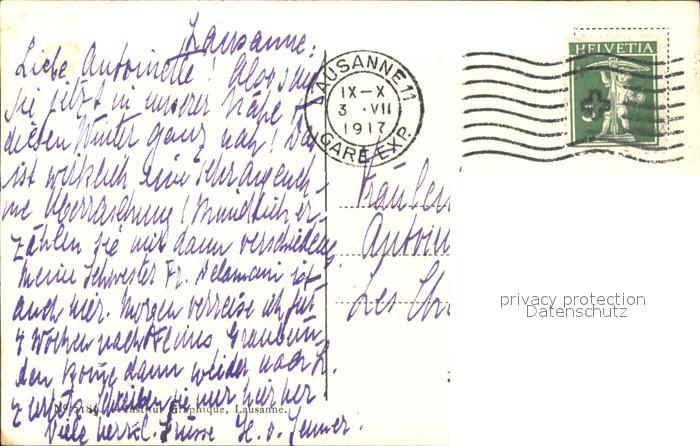 Lausanne.
Liebe Antoinette! Also sind
Sie jetzt in unserer Nähe u.
diesen Winter ganz nah! Das
ist wirklich eine sehr angeneh-
me Überraschung! Mündlich er-
zählen Sie mir dann verschiedenes.
Meine Schwester Fr. Delamani ist
auch hier. Morgen verreise ich für
4 Wochen nach Flims Graubün-
den komme dann wieder nach L.
zurück. Schreiben Sie nur hierher
Viele herzl. Grüsse H. v. Jenner.
No 5184 Institut Graphique, Lausanne.
LAUSANNE 11
IX-X
3 .VII
1917
GARE EXP.
HELVETIA
5
Fräulein
Antoin
Les Ch
privacy protection
Datenschutz